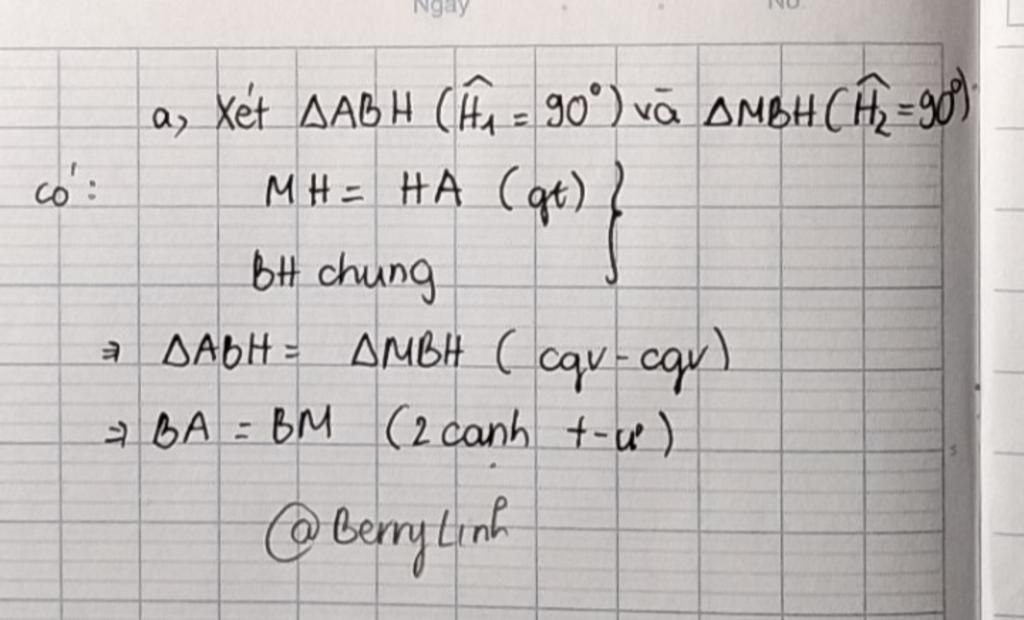 Ngày No
a, Xét ΔABH (Ĥ₁ = 90°) và ΔMBH (Ĥ₂ = 90°)
có: MH = HA (gt) }
BH chung
⇒ ΔABH = ΔMBH (cgv - cgv)
⇒ BA = BM (2 cạnh t-ư)
@BerryLinh